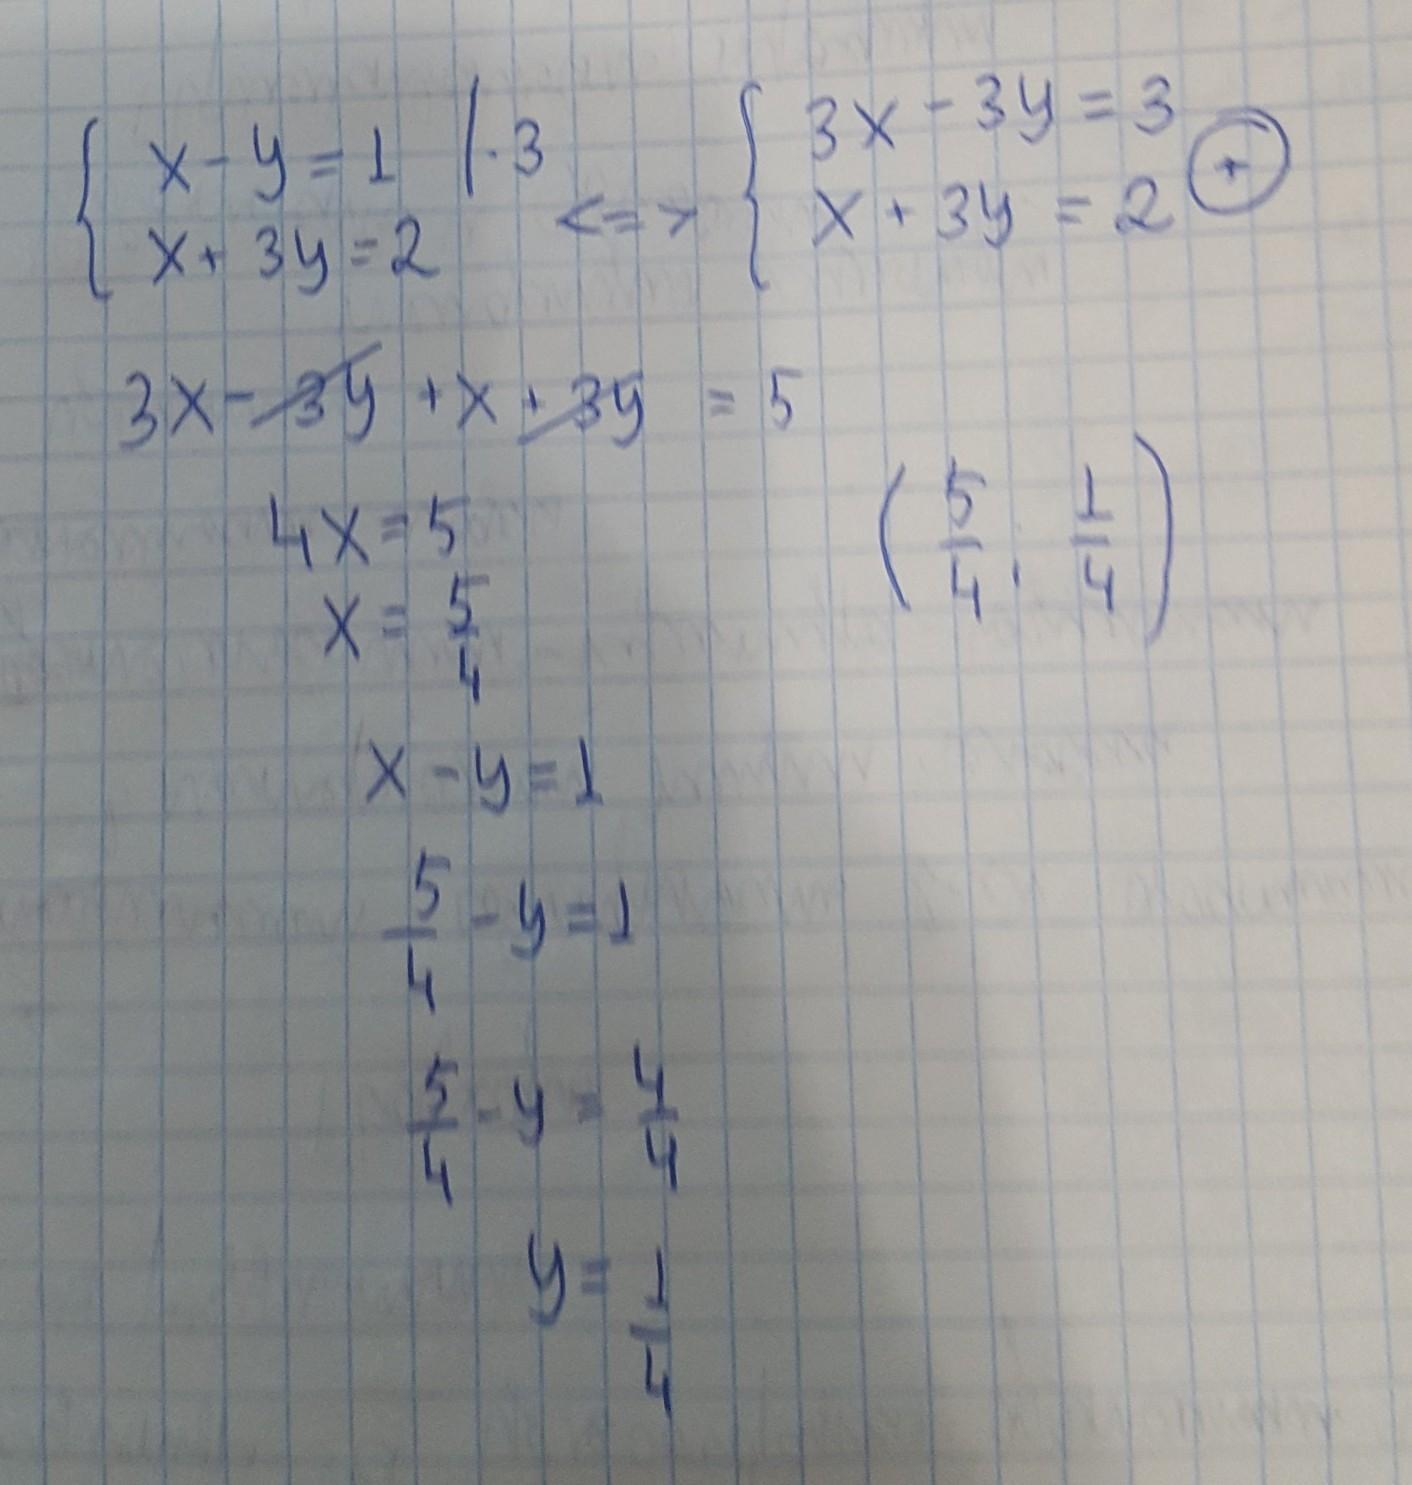 { x - y = 1 | · 3
x + 3y = 2
<=>
{ 3x - 3y = 3
x + 3y = 2
+
3x - 3y + x + 3y = 5
4x = 5
x = 5/4
(5/4; 1/4)
x - y = 1
5/4 - y = 1
5/4 - y = 4/4
y = 1/4